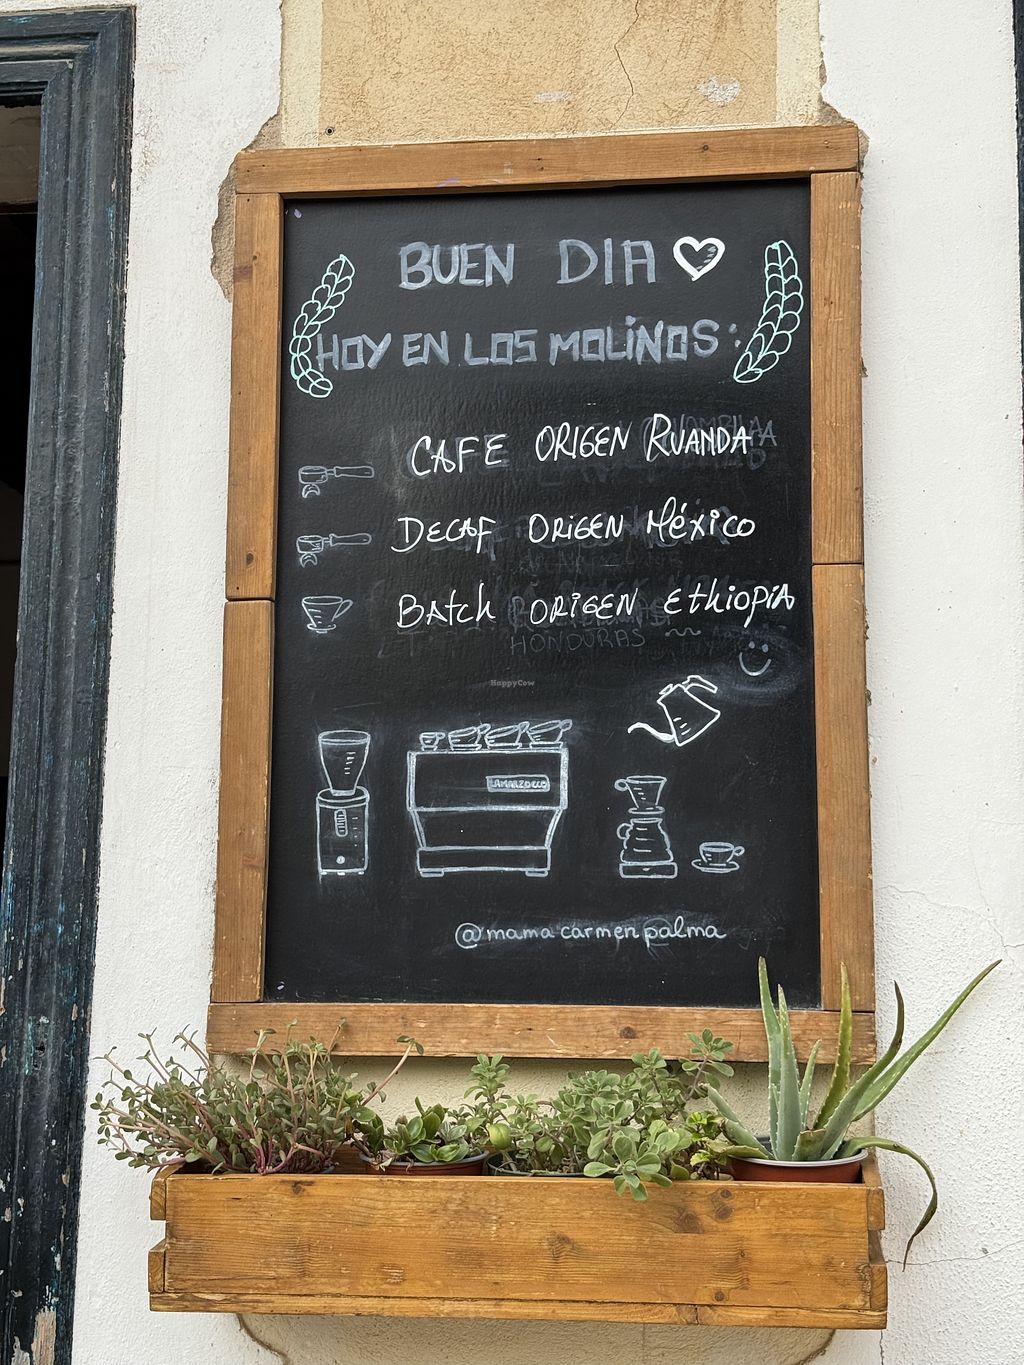 BUEN DIA
HOY EN LOS MOLINOS:
CAFE ORIGEN RUANDA
DECAF ORIGEN México
BATCH ORIGEN EthiopiA
HONDURAS
HappyCow
LAMARZOCCO
@mamacarmenpalma